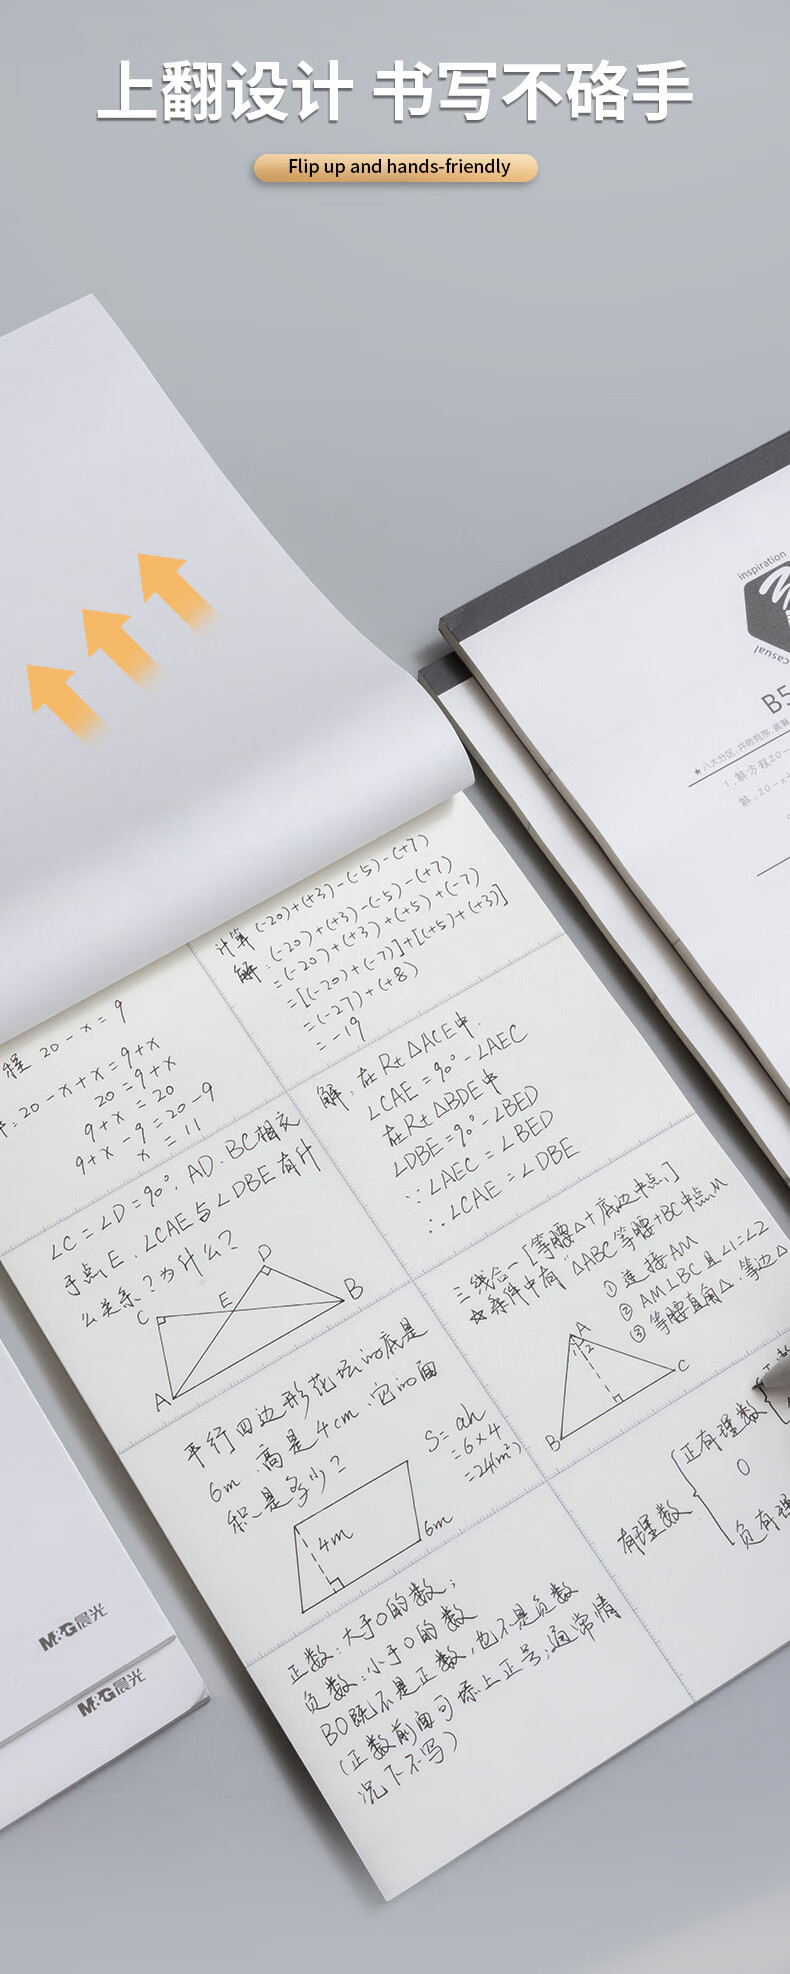 上翻设计 书写不硌手
Flip up and hands-friendly
inspiration
casual
B5
★八大分区,井然有序,演算
1.解方程20-
解:20-x+
计算(-20)+(+3)-(-5)-(+7)
解:(-20)+(+3)-(-5)-(+7)
=(-20)+(+3)+(+5)+(-7)
=[(-20)+(-7)]+[(+5)+(+3)]
=(-27)+(+8)
=-19
程 20-x=9
:20-x+x=9+x
20=9+x
9+x=20
9+x-9=20-9
x=11
解:在Rt△ACE中.
∠CAE=90°-∠AEC
在Rt△BDE中
∠DBE=90°-∠BED
∵∠AEC=∠BED
∴∠CAE=∠DBE
∠C=∠D=90°.AD.BC相交
于点E.∠CAE与∠DBE有什
么关系?为什么?
C
D
E
B
A
三线合一[等腰△+底边中点]
☆条件中有"△ABC等腰+BC中点M
①连接AM
②AM⊥BC且∠1=∠2
③等腰直角△.等边△
A
1 2
B
C
平行四边形花坛的底是
6m.高是4cm.它的面
积是多少?
S=ah
=6×4
=24(m²)
4m
6m
有理数
正有理数
0
负有理
正数:大于0的数;
负数:小于0的数
BO既不是正数,也不是负数
(正数前面可添上正号;通常情
况下不写)
M&G晨光
M&G晨光